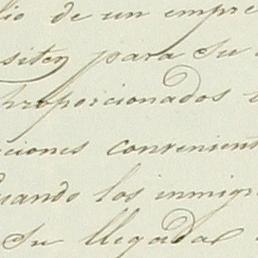 lio de un empre
siten para su
proporcionados
ciones convenient
Cuando los inmigr
su llegada